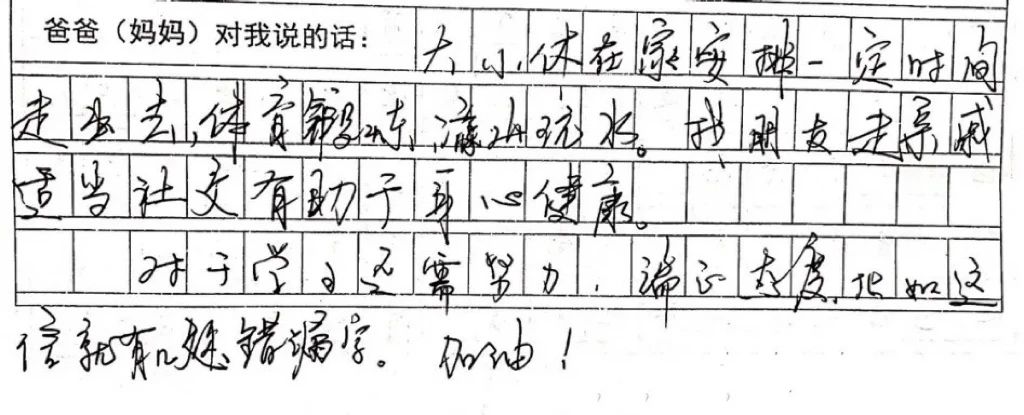 爸爸（妈妈）对我说的话： 大小休在家安排一定时间
走出去,体育锻炼,游山玩水。找朋友走亲戚
适当社交有助于身心健康。
对于学习还需努力,端正态度,比如这
信就有几处错漏字。加油！